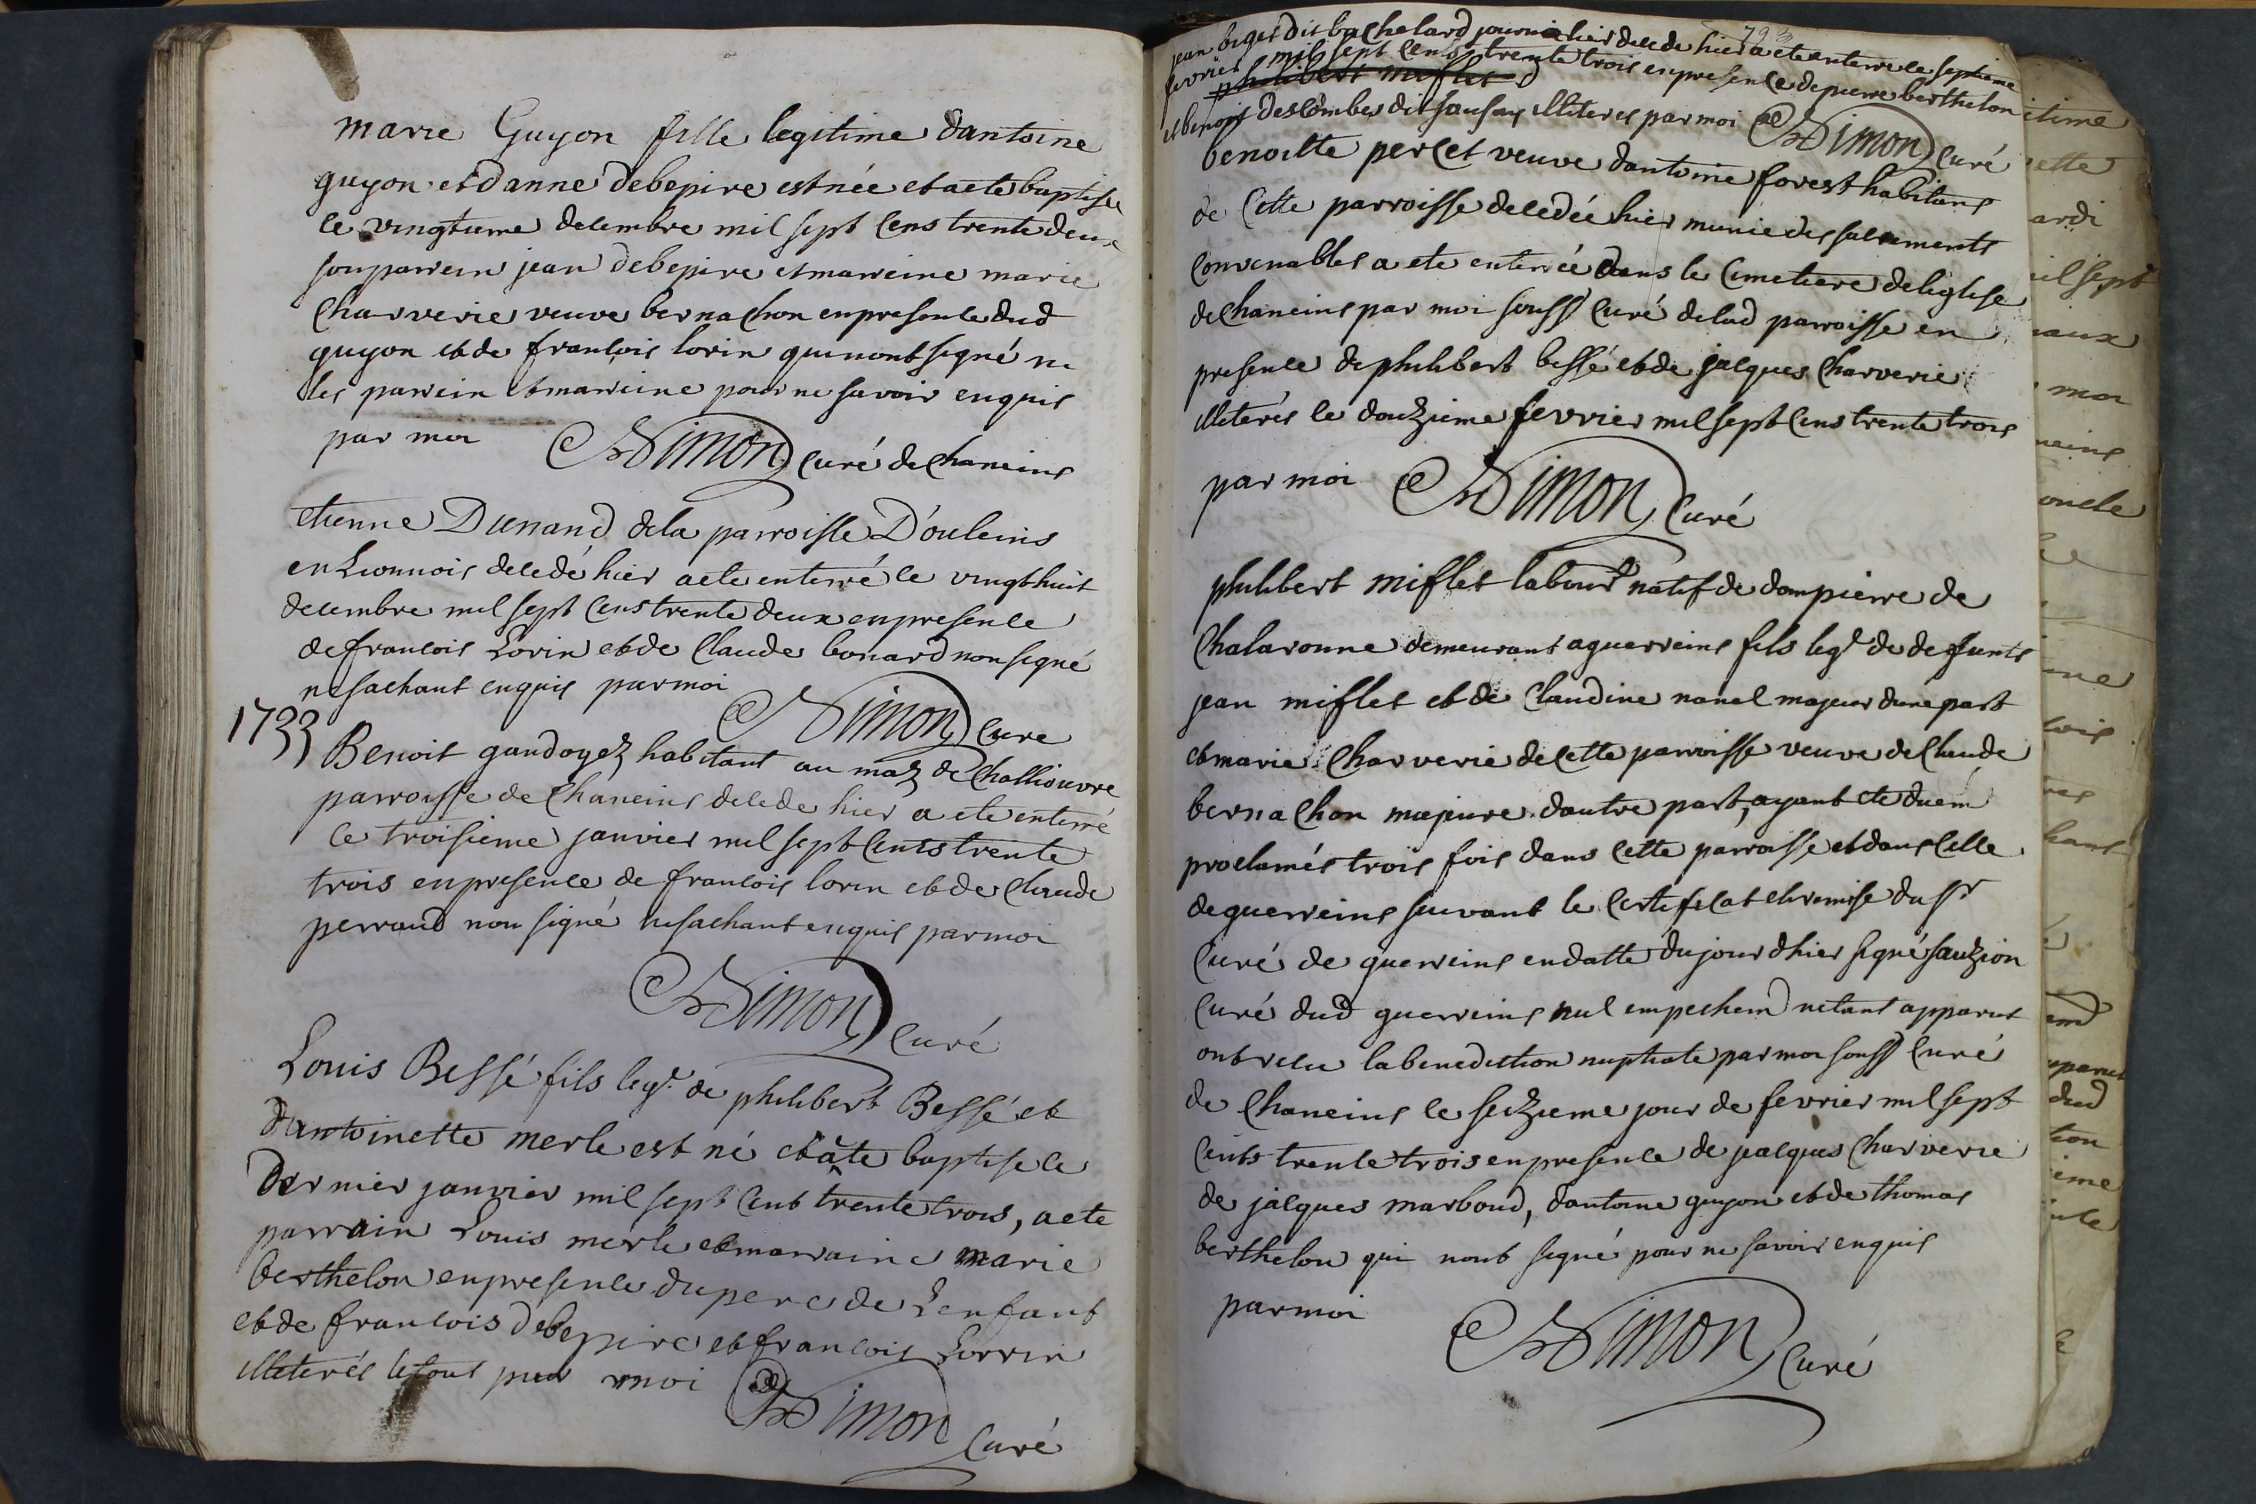 marie Guyon fille legitime dantoine
guyon et danne debepire est née et a ete baptisée
le vingtieme decembre mil sept cens trente deux
son parrein jean debepire et marreine marie
Charverie veuve bernachon en presence dud
guyon et de françois lorin qui nont signé ni
les parrein et marreine pour ne savoir enquis
par moi Simon curé de Chaneins
etienne Dunand de la parroisse D'ouleins
en Lionnois decedé hier a ete enterré le vingt huit
decembre mil sept cens trente deux en presence
de francois Lorin et de Claude bonard non signé
ne sachant enquis par moi
Simon cure
1733
Benoit gandogez habitant au maz de Challiouvre
parroisse de Chaneins decede hier a ete enterré
le troisieme janvier mil sept cents trente
trois en presence de francois lorin et de Claude
perraud non signé ne sachant enquis par moi
Simon curé
Louis Bessé fils leg.e de philibert Bessé et
dantoinette merle est né et a été baptise le
dernier janvier mil sept cent trente trois, a ete
parrain Louis merle et marraine marie
berthelon en presence du pere de Lenfant
et de francois debepire et francois Lorrin
illeterés le tout par moi
Simon curé
793
jean biges dit bachelard journalier decede hier a ete enterré le septieme
fevrier mil sept cents trente trois en presence de pierre berthelon
philibert miflet
et benoist descombes dit sansous illiteres par moi Simon curé
benoitte percet veuve dantoine forest habitans
de cette parroisse decedée hier munie des sacrements
convenables a ete enterrée dans le cimetiere deleglise
de Chaneins par moi souss curé de lad parroisse en
presence de philibert bessé et de jacques Charverie
illeterés le douzieme fevrier mil sept cens trente trois
par moi Simon curé
philibert miflet labour.r natif de dompierre de
Chalaronne demeurant a guerreins fils leg.e de defunts
jean miflet et de Claudine nanel majeur dune part
et marie Charverie de cette parroisse veuve de Claude
bernachon majeure dautre part, ayant ete duem
proclamés trois fois dans cette parroisse et dans celle
de guerreins suivant le certificat et remise du s.r
curé de guerreins en datte du jour dhier signé sauzion
curé dud guerreins nul empechem netant apparut
ont recu la benediction nuptiale par moi souss curé
de Chaneins le seizieme jour de fevrier mil sept
cents trente trois en presence de jacques Charverie
de jacques marboud, dantoine guyon et de thomas
berthelon qui nont signé pour ne savoir enquis
par moi
Simon curé